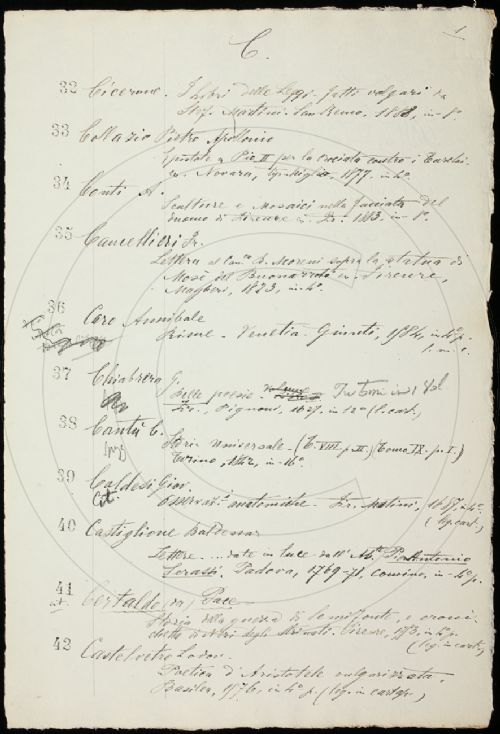 1
C.
32 Cicerone. I libri delle Leggi fatti volgari da
Stef. Martini. San Remo, 18 in-8°.
33 Collazio Pietro Apollonio
Epistola a Pio II per la crociata contro i Turchi.
Novara, tip. Miglio, 1877. in-4°.
34 Conti A.
Sculture e Mosaici nella facciata del
duomo di Firenze in Fir. 1883, in-8°.
35 Cancellieri Fr.
Lettera al Can.co D. Moreni sopra la statua di
Mosè del Buonarroti. Firenze,
Magheri, 1823, in-4°.
36 Caro Annibale
Rime. Venetia. Giunti, 1584, in-4° p.
l. m. c.
37 Chiabrera G.
delle poesie. Tre tomi in 1 Vol
Fir., Pignoni, 1627. in-12° (l. cart.)
38 Cantù C.
Storia universale. (T. VIII. p. II.) (Tomo IX. p. I.)
Torino, in-16°.
39 Caldesi Giov.
Osservaz.i anatomiche. Fir. Matini, 1687. in-4°.
(leg. cart.)
40 Castiglione Baldessar
Lettere ... date in luce dall'Ab.te Pierantonio
Serassi. Padova, 1769-71, Comino, in-4° p.
41 Certaldo (da) Pace
Storia della guerra di Semifonte, e croni-
chetta di Neri degli Strinati. Firenze, 1753, in-8° p.
(leg. in cart.)
42 Castelvetro Lodov.
Poetica d'Aristotele vulgarizzata.
Basilea, 1576, in-4° p. (leg. in cartap.)